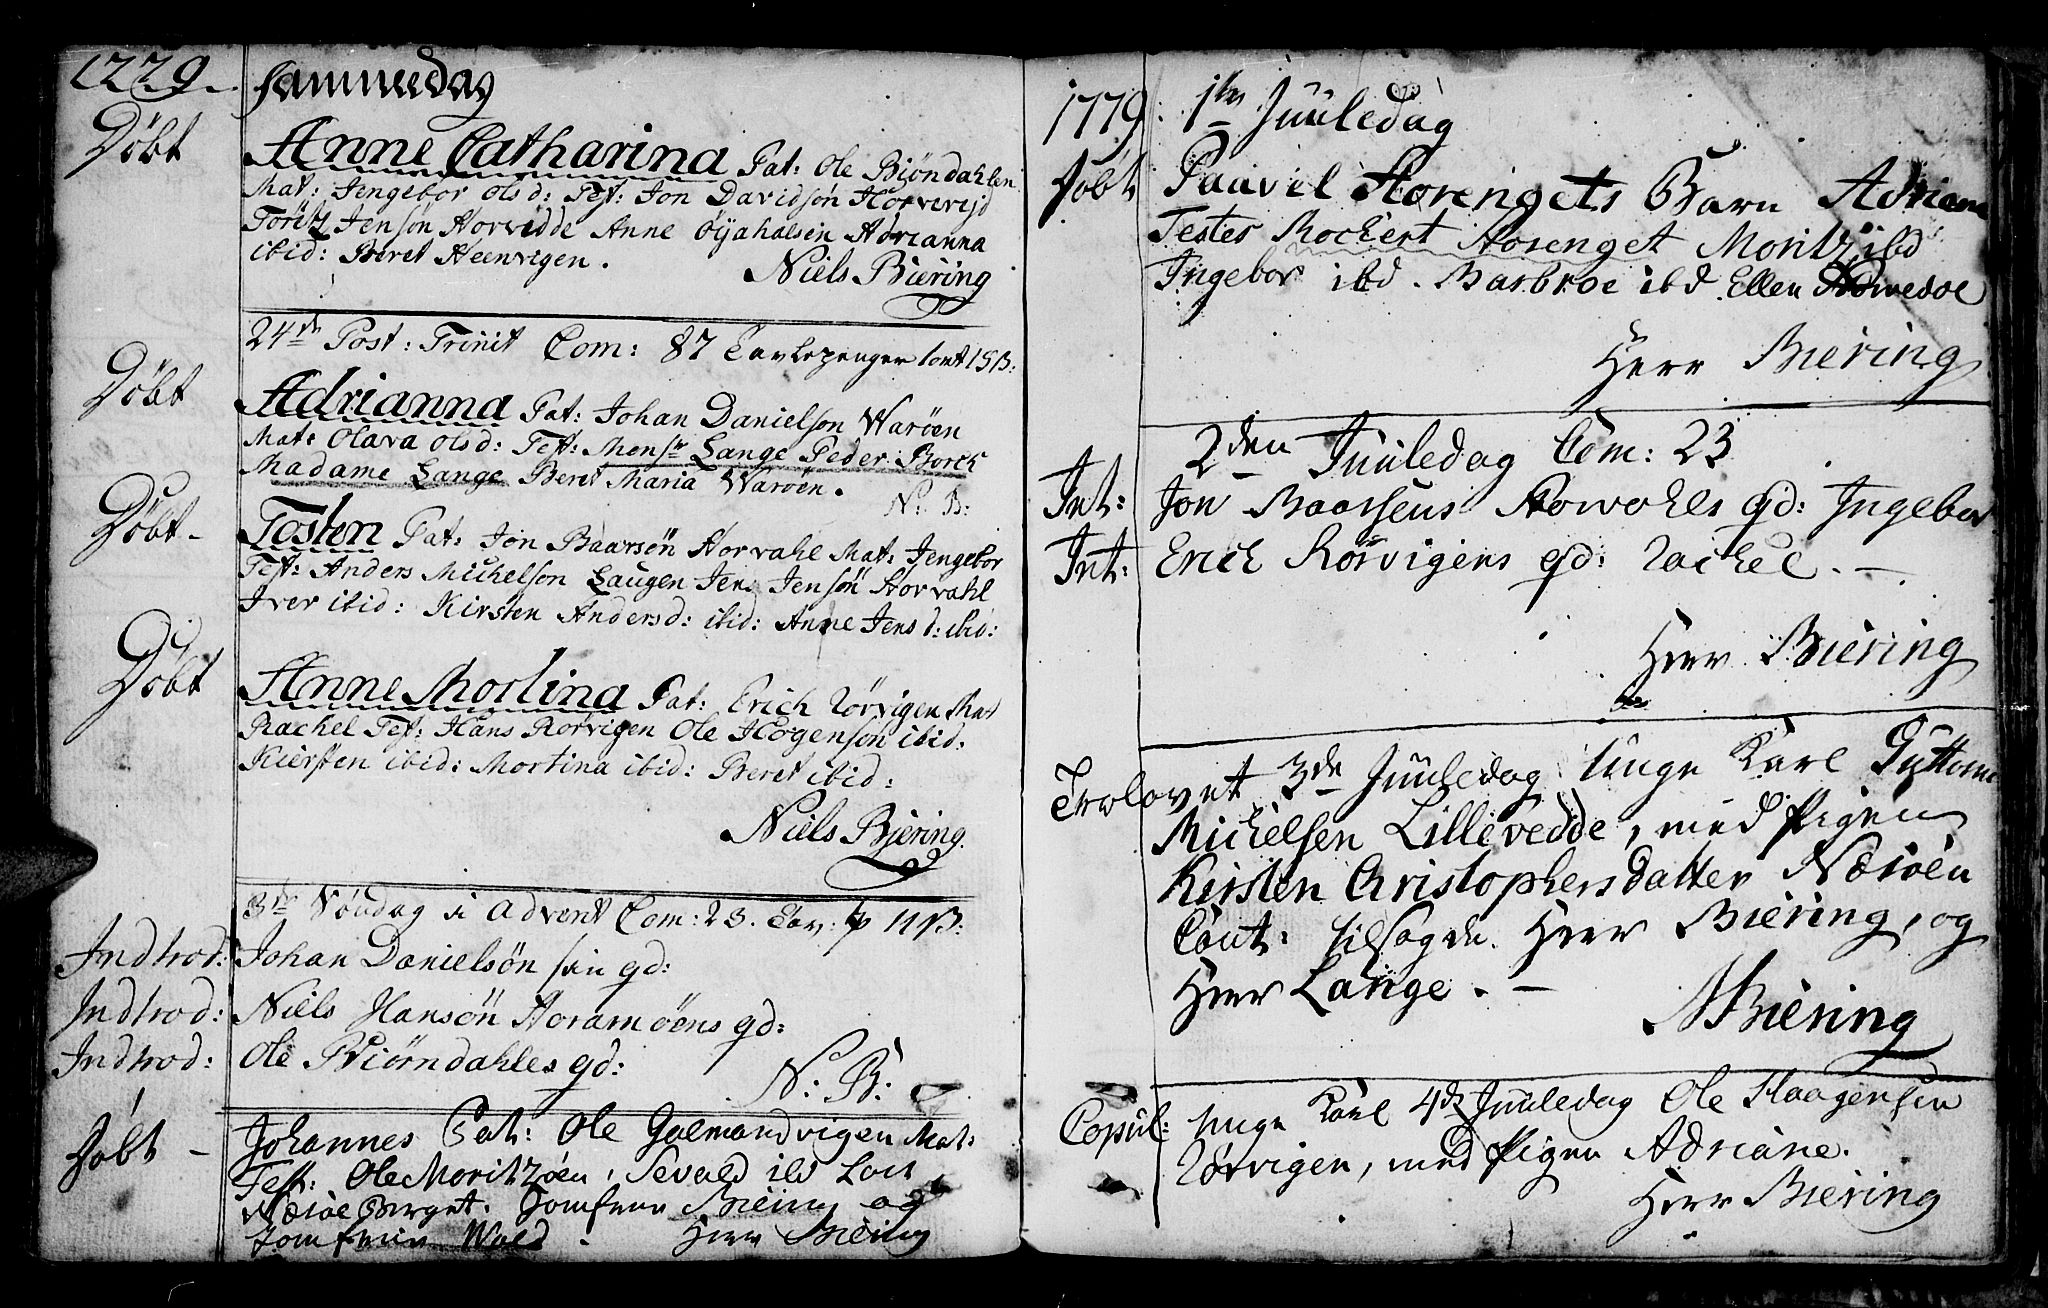 1779. Sammedag
Döbt Anne Catharina Pat: Ole Biöndahlen
Mat: Jengebor Olsd: Test: Jon Davidsön
Jensön Horvedde Anne Öyahalsen Adrianna
ibid: Beret Heenvigen.
Niels Biering
24de Post: Trinit Com: 87 Tavlepenger
Döbt Adrianna Pat: Johan Danielson Waröen
Mat: Olava Olsd: Test: Monsr Lange Peder Borch
Madame Lange Beret Maria Waröen.
N: B:
Döbt - Tosten Pat: Jon Baarsön Horvahl Mat: Jengebor
Test: Anders Michelson Laugen Jens Jensön Horvahl
Iver ibid: Kirsten Andersd: ibid: Anne Jensd: ibid:
Döbt Anne Mortina Pat: Erich Rörvigen Mat
Rachel Test: Hans Rörvigen Ole Hogensön ibid:
Kiersten ibid: Mortina ibid: Beret ibid:
Niels Biering
3de Söndag i Advent Com: 23. Tav:
Indtrod: Johan Danielsön sin qd:
Indtrod: Niels Hansön Horamöens qd:
Indtrod: Ole Biörndahles qd:
N: B:
Döbt - Johannes Pat: Ole Galmandvigen Mat:
Test: Ole Moritzöen, Sevald ibd
Næröe Berget. Jomfrue Biering og
Jomfrue Wold. Herr Biering
1779. 1te Juuledag
Döbt Paavel Horengets Barn Adriane
Testes Rochert Horenget Moritz ibd
Ingebor ibd. Barbroe ibd Ellen
Herr Biering
2den Juuledag Com: 23
Int: Jon Baarsens qd: Ingebor
Int: Erich Rörvigens qd: Rachel. -
Herr Biering
Trolovet 3de Juuledag unge Karl Guttorm
Michelsen Lillevedde, med Pigen
Kirsten Christophersdatter Næröen
Caut: tilsagde. Herr Biering, og
Herr Lange. -
NBiering
Copul: unge Karl 4de Juuledag Ole Haagensen
Rörvigen, med Pigen Adriane.
Herr Biering